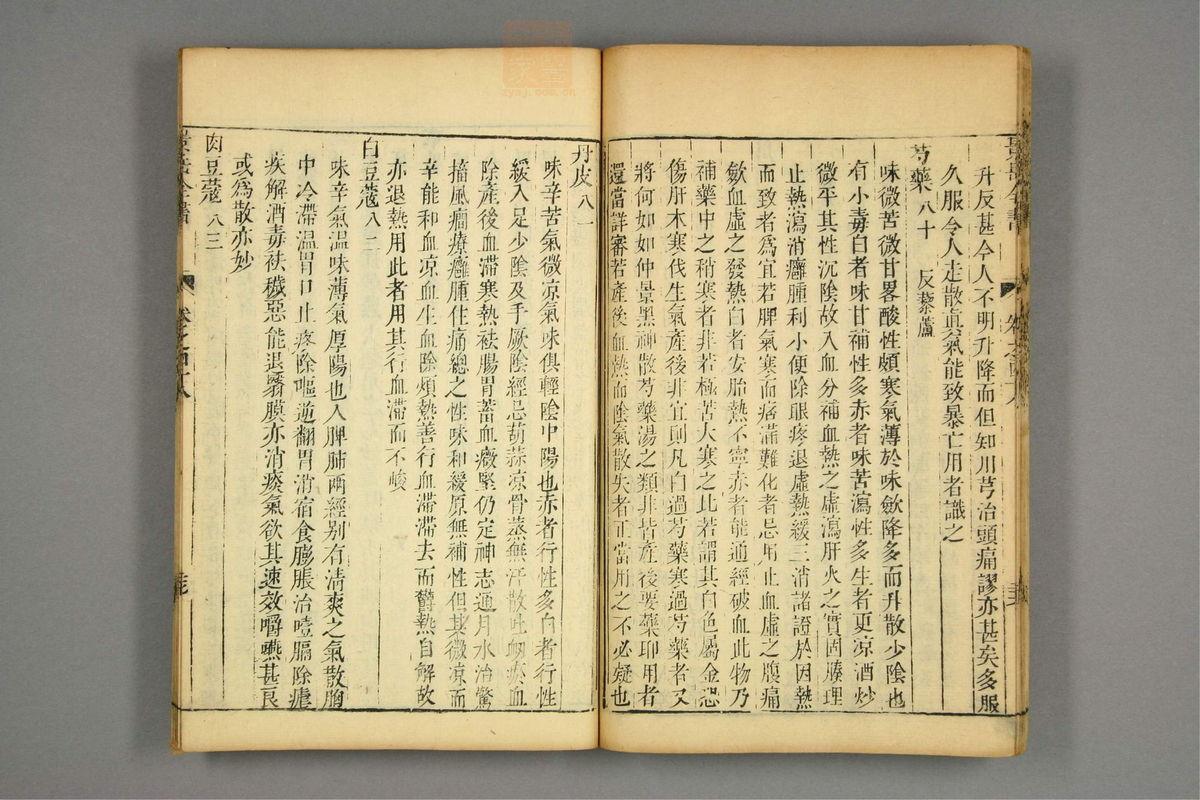 升反甚今人不明升降而但知川芎治頭痛謬亦甚矣多服
久服令人走散眞氣能致暴亡用者識之
芍藥八十 反藜蘆
味微苦微甘畧酸性頗寒氣薄於味斂降多而升散少陰也
有小毒白者味甘補性多赤者味苦瀉性多生者更凉酒炒
微平其性沉陰故入血分補血熱之虛瀉肝火之實固腠理
止熱瀉消癰腫利小便除眼疼退虛熱緩三消諸證於因熱
而致者爲宜若脾氣寒而痞滿難化者忌用止血虛之腹痛
斂血虛之發熱白者安胎熱不寧赤者能通經破血此物乃
補藥中之稍寒者非若極苦大寒之比若謂其白色屬金恐
傷肝木寒伐生氣產後非宜則凡白過芍藥寒過芍藥者又
將何如如仲景黑神散芍藥湯之類非皆產後要藥耶用者
還當詳審若產後血熱而陰氣散失者正當用之不必疑也
丹皮八一
味辛苦氣微凉氣味俱輕陰中陽也赤者行性多白者行性
緩入足少陰及手厥陰經忌葫蒜凉骨蒸無汗散吐衂瘀血
除產後血滯寒熱袪腸胃蓄血癥堅仍定神志通月水治驚
搐風癎療癰腫住痛總之性味和緩原無補性但其微凉而
辛能和血凉血生血除煩熱善行血滯滯去而鬱熱自解故
亦退熱用此者用其行血滯而不峻
白豆蔻八二
味辛氣溫味薄氣厚陽也入脾肺兩經别有清爽之氣散胸
中冷滯溫胃口止疼除嘔逆翻胃消宿食膨脹治噎膈除瘧
疾解酒毒袪穢惡能退翳膜亦消痰氣欲其速效嚼嚥甚良
或爲散亦妙
肉豆蔻八三
景岳全書 卷之四十八